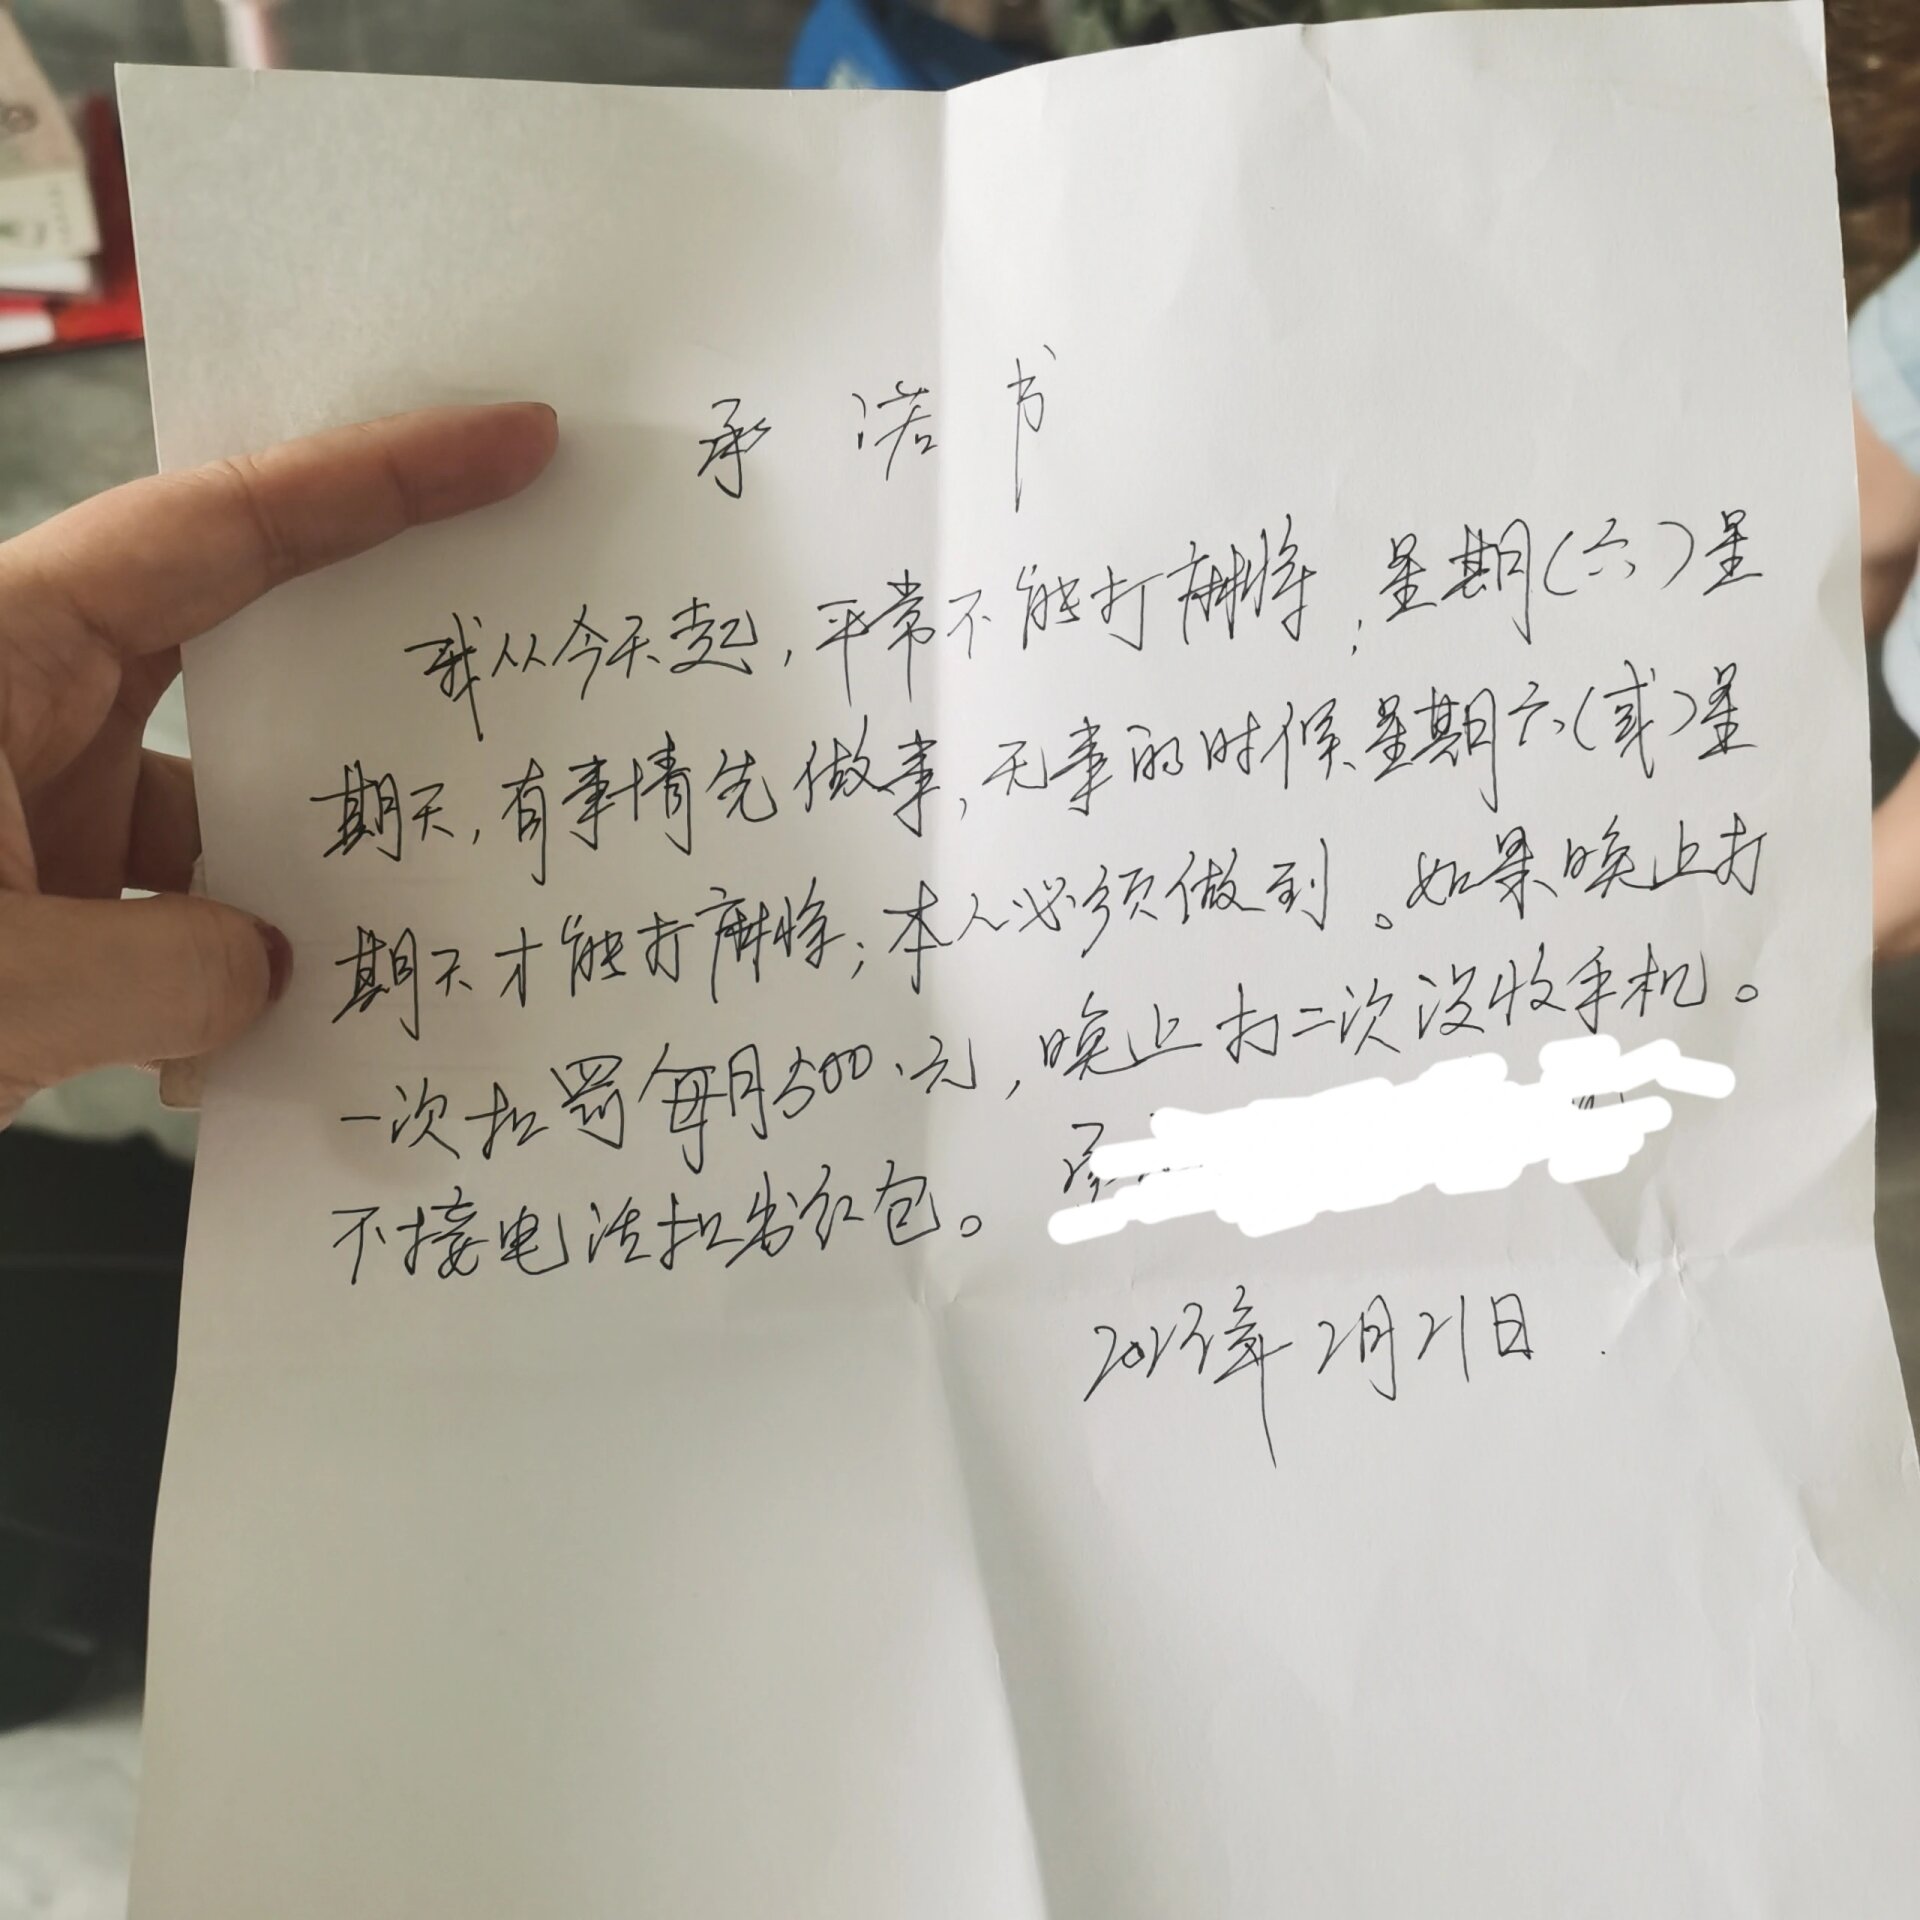 承诺书
我从今天起，平常不能打麻将；星期（六）星
期天，有事情先做事，无事的时候星期六（或）星
期天才能打麻将；本人必须做到。如果晚上打
一次扣罚每月500.元，晚上打二次没收手机。
不接电话扣发红包。 承
年2月21日